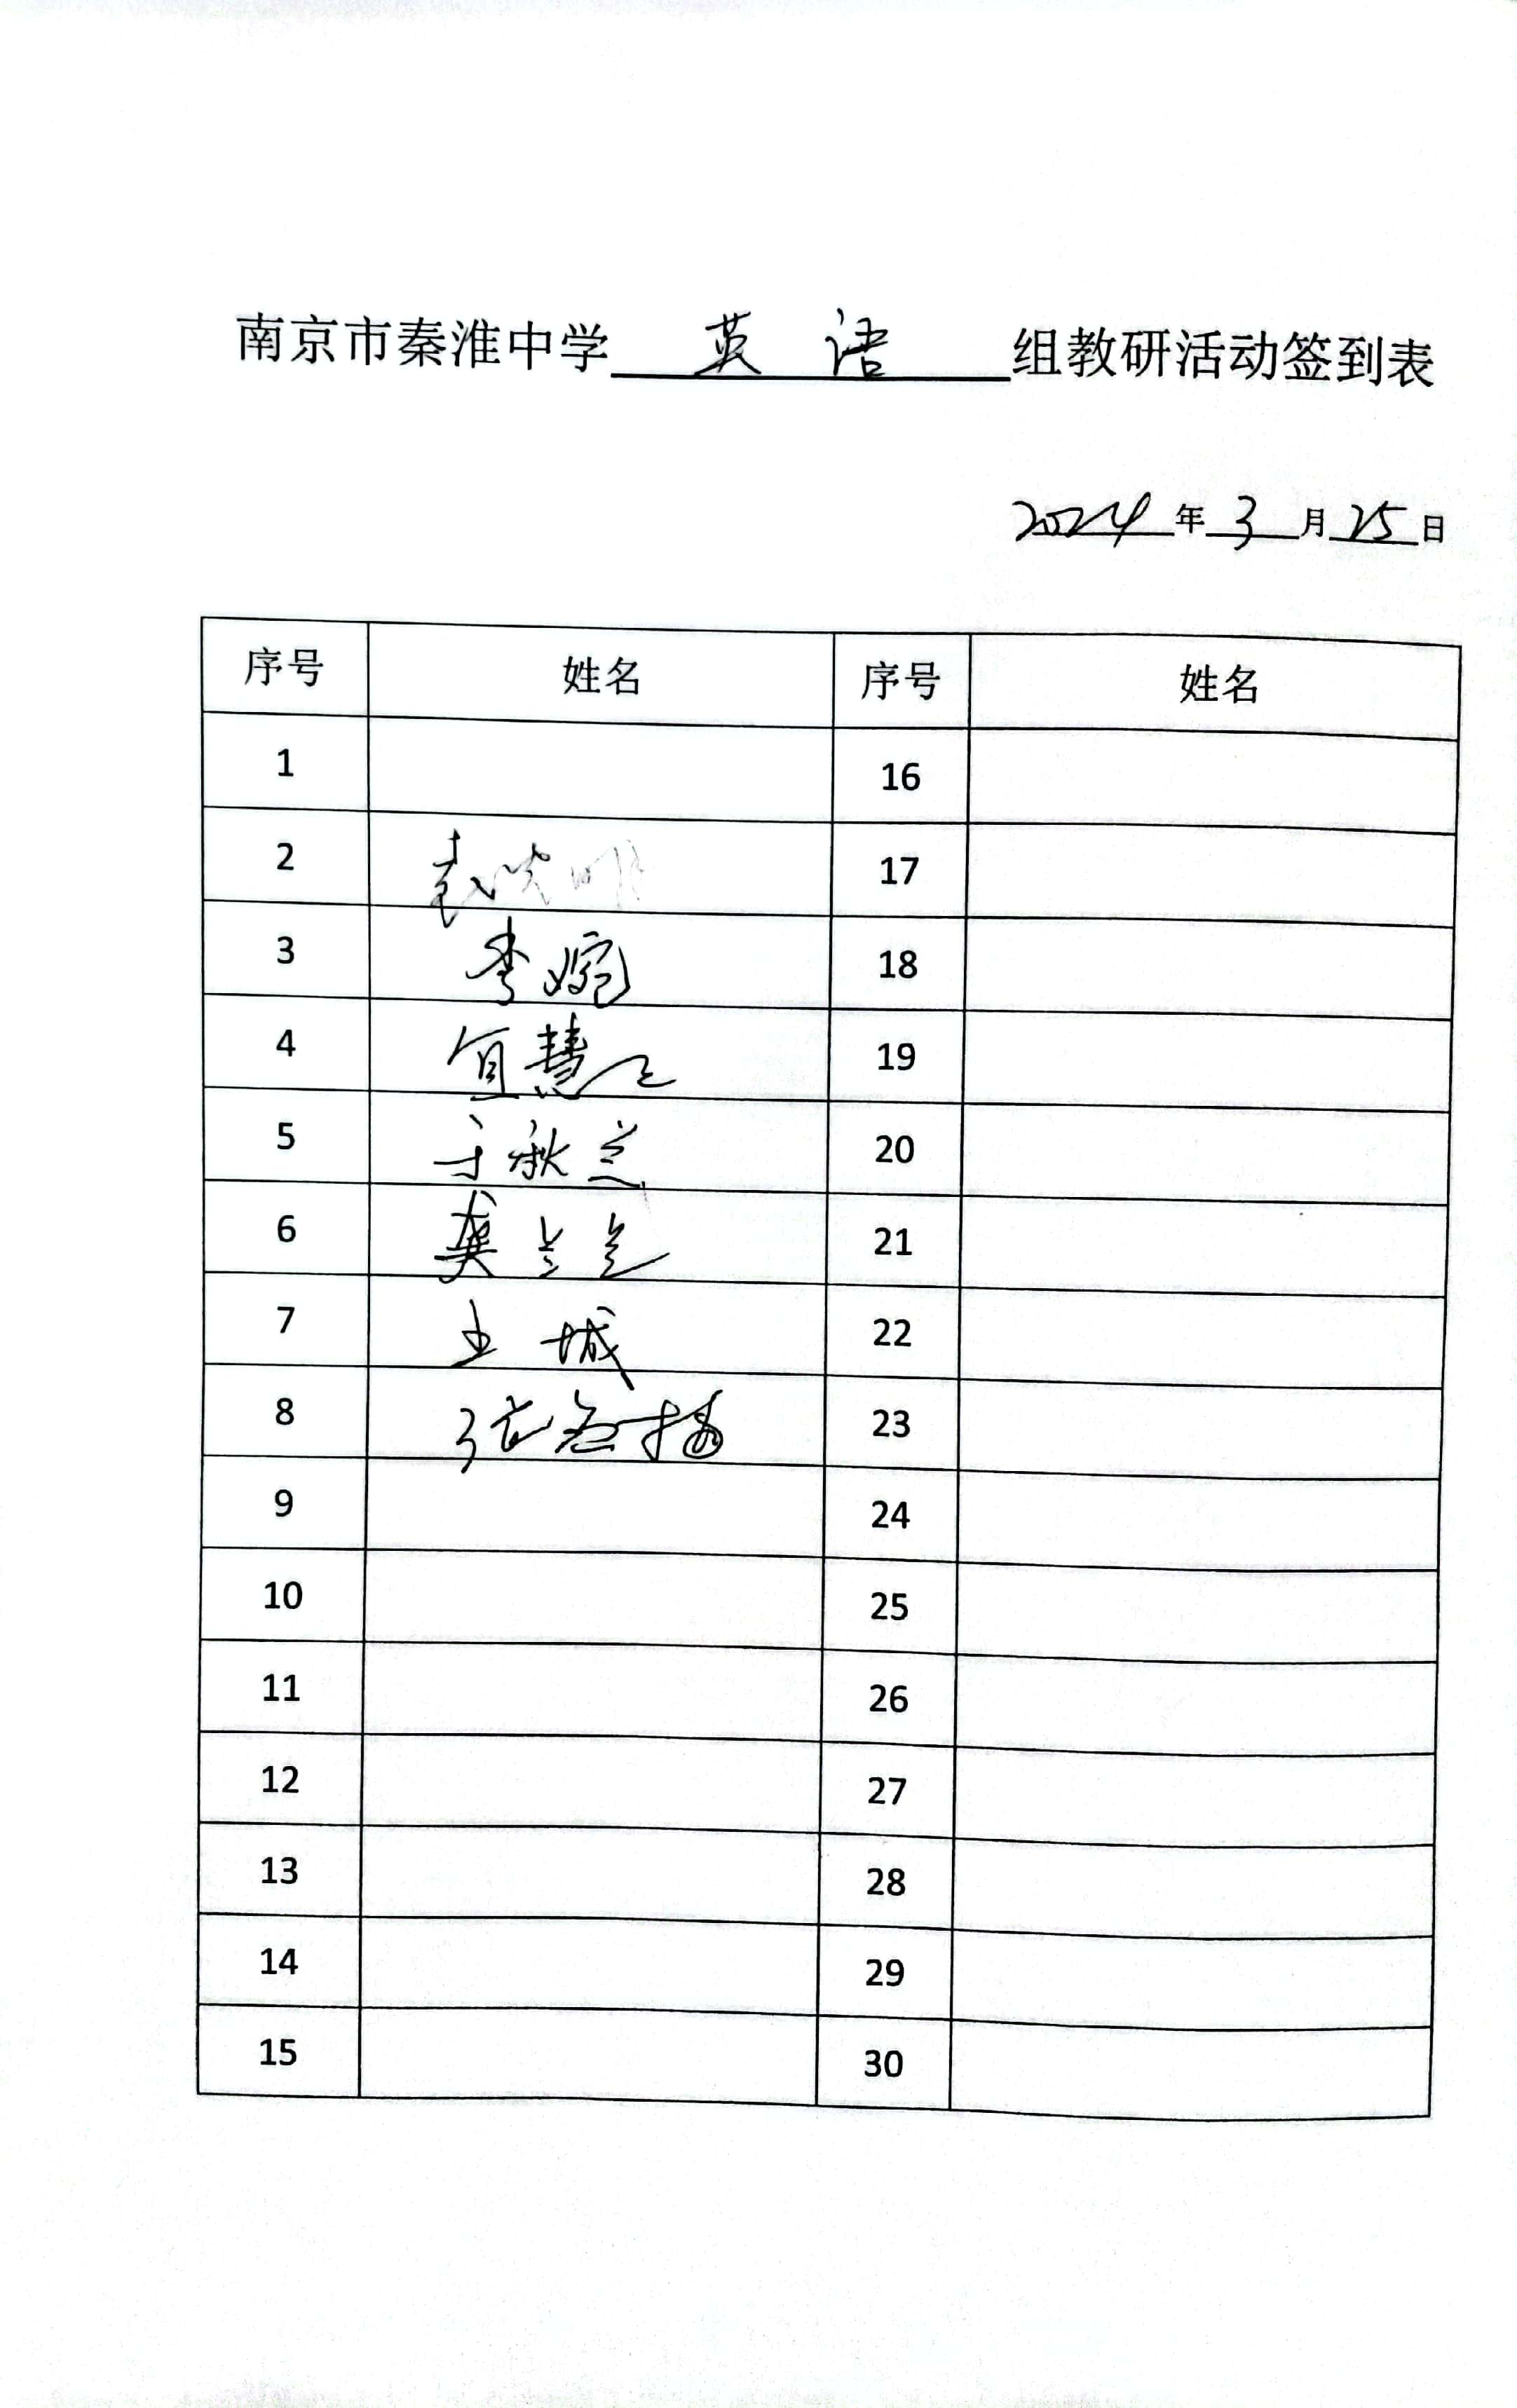 南京市秦淮中学 英语 组教研活动签到表
2024年3月25日
序号 姓名 序号 姓名
1 16
2 袁晓明 17
3 李婉 18
4 19
5 于秋兰 20
6 龚兰兰 21
7 王城 22
8 23
9 24
10 25
11 26
12 27
13 28
14 29
15 30